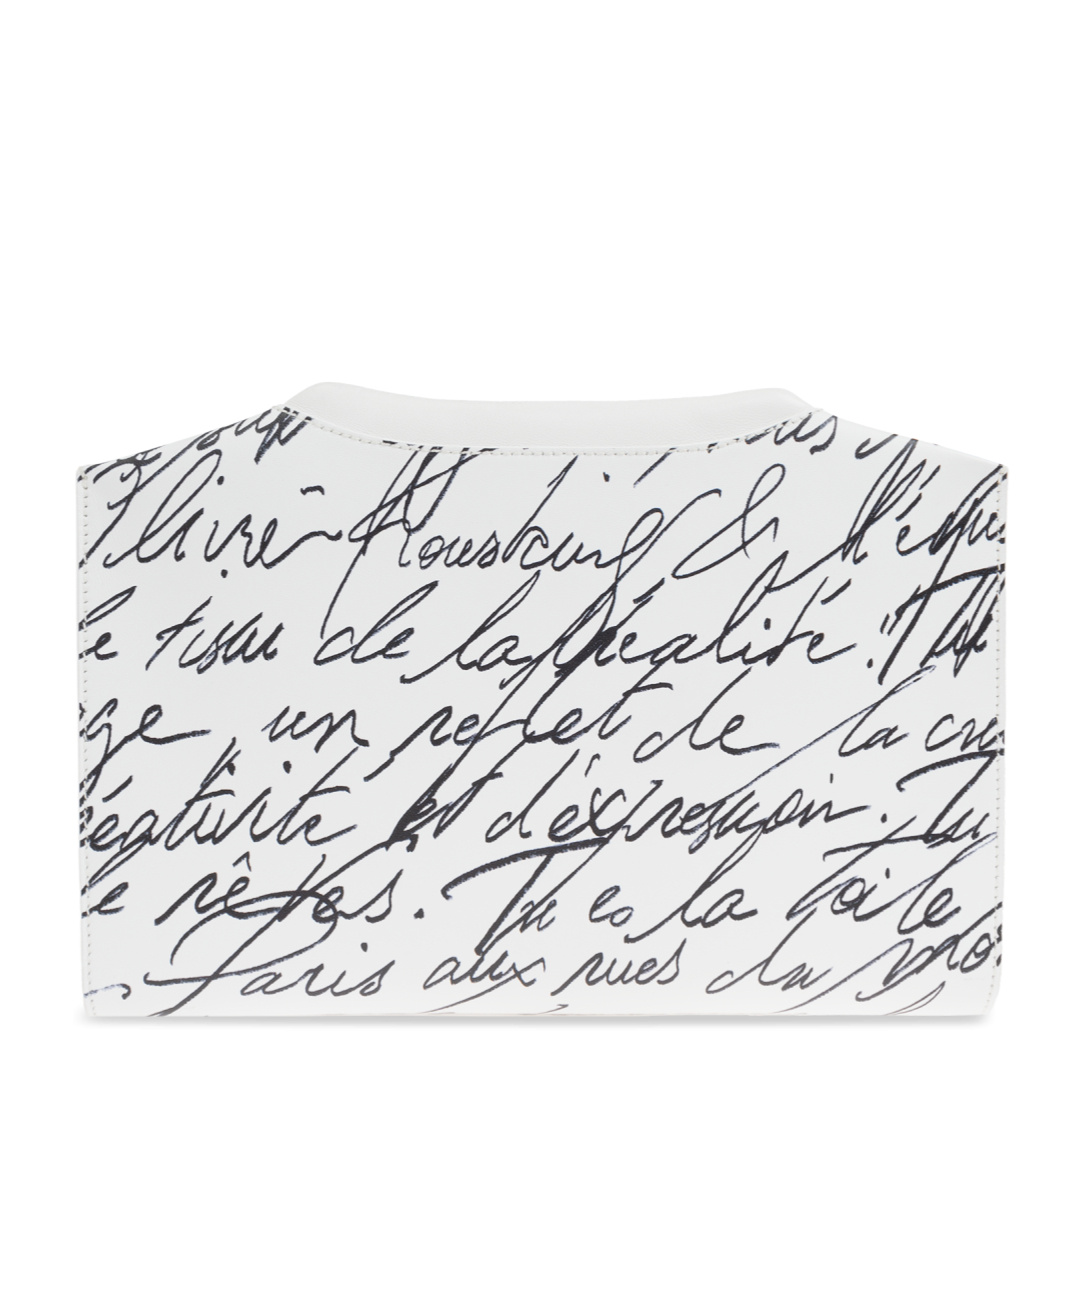 Olivier Rousteing & l'équi
le tissu de la réalité. Tu
ge un reflet de la cré
éativité et d'expression. Tu
de rêves. Tu es la toile
Paris aux rues du mo